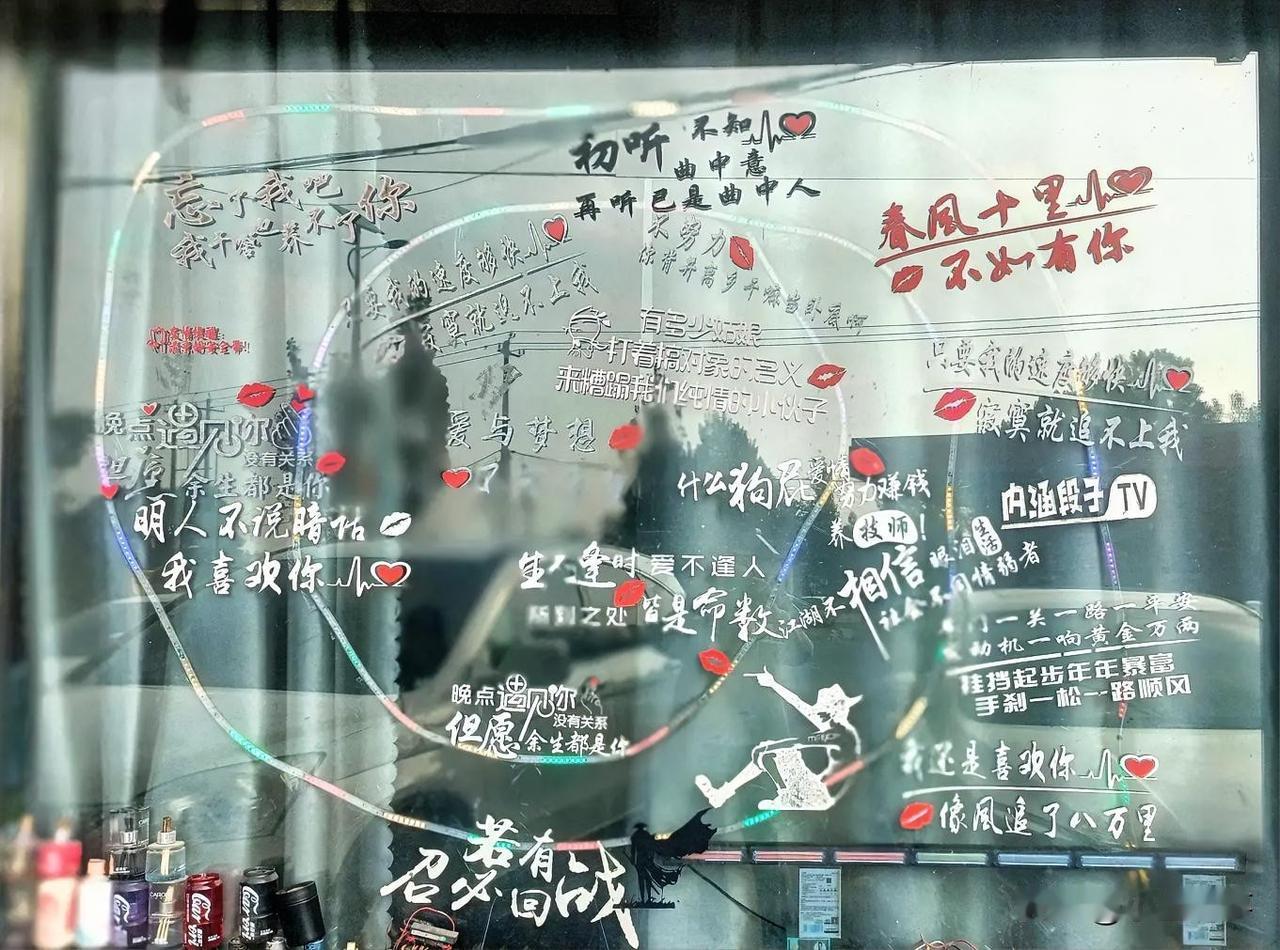 初听不知
曲中意
再听已是曲中人
忘了我吧
我干啥也养不了你
春風十里
不如有你
只要我的速度够快
寂寞就追不上我
不努力
你背井离乡干嘛当卧底啊
有多少姑娘
打着搞对象的名义
来糟蹋我们纯情的小伙子
只要我的速度够快
寂寞就追不上我
晚点遇见你
没有关系
余生都是你
爱与梦想
了
明人不说暗话
我喜欢你
什么狗屁爱情
努力赚钱
养技师!
内涵段子TV
生不逢时 爱不逢人
所到之处 皆是命数
江湖不相信眼泪
生活
社会不同情弱者
门一关一路一平安
动机一响黄金万两
挂挡起步年年暴富
手刹一松一路顺风
晚点遇见你
没有关系
但愿余生都是你
我还是喜欢你
像風追了八万里
若有战
召必回